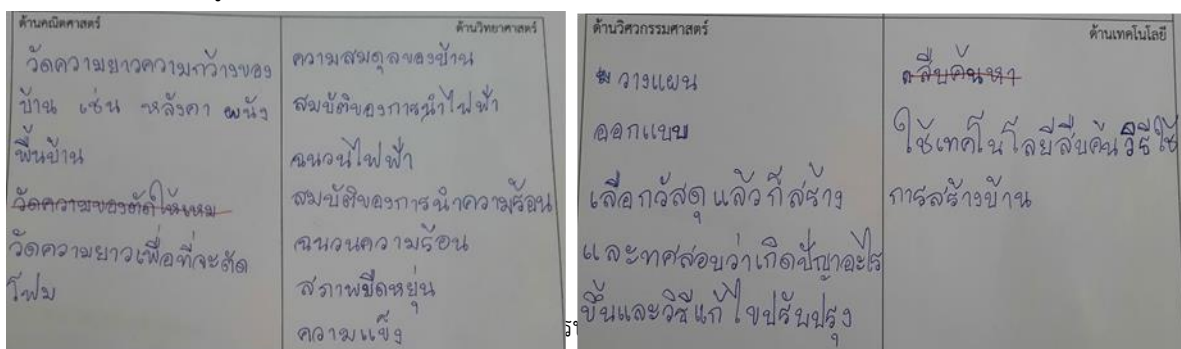 ด้านคณิตศาสตร์
วัดความยาวความกว้างของ
บ้าน เช่น หลังคา ผนัง
พื้นบ้าน
วัดความยาวเพื่อที่จะตัด
โฟม
ด้านวิทยาศาสตร์
ความสมดุลของบ้าน
สมบัติของการนำไฟฟ้า
ฉนวนไฟฟ้า
สมบัติของการนำความร้อน
ฉนวนความร้อน
สภาพยืดหยุ่น
ความแข็ง
ด้านวิศวกรรมศาสตร์
วางแผน
ออกแบบ
เลือกวัสดุแล้วก็สร้าง
และทดสอบว่าเกิดปัญาอะไร
ขึ้นและวิธีแก้ไขปรับปรุง
ด้านเทคโนโลยี
สืบค้นหา
ใช้เทคโนโลยีสืบค้นวิธีใช้
การสร้างบ้าน